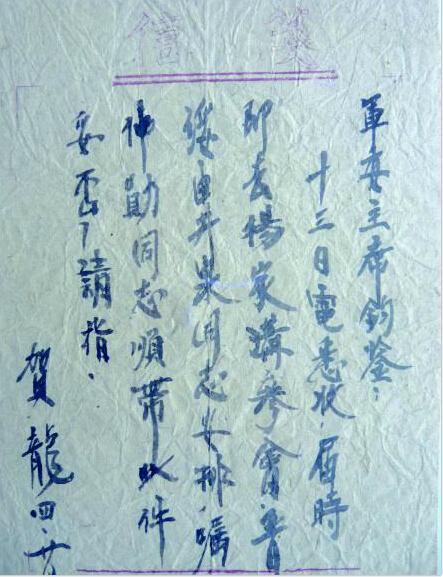 信箋
軍委主席鈞鑒：
十三日電悉收，屆時
即去楊家溝參會，晉
綏由井泉同志安排，囑
仲勛同志順帶件
妥否？請指．
賀龍 四．廿